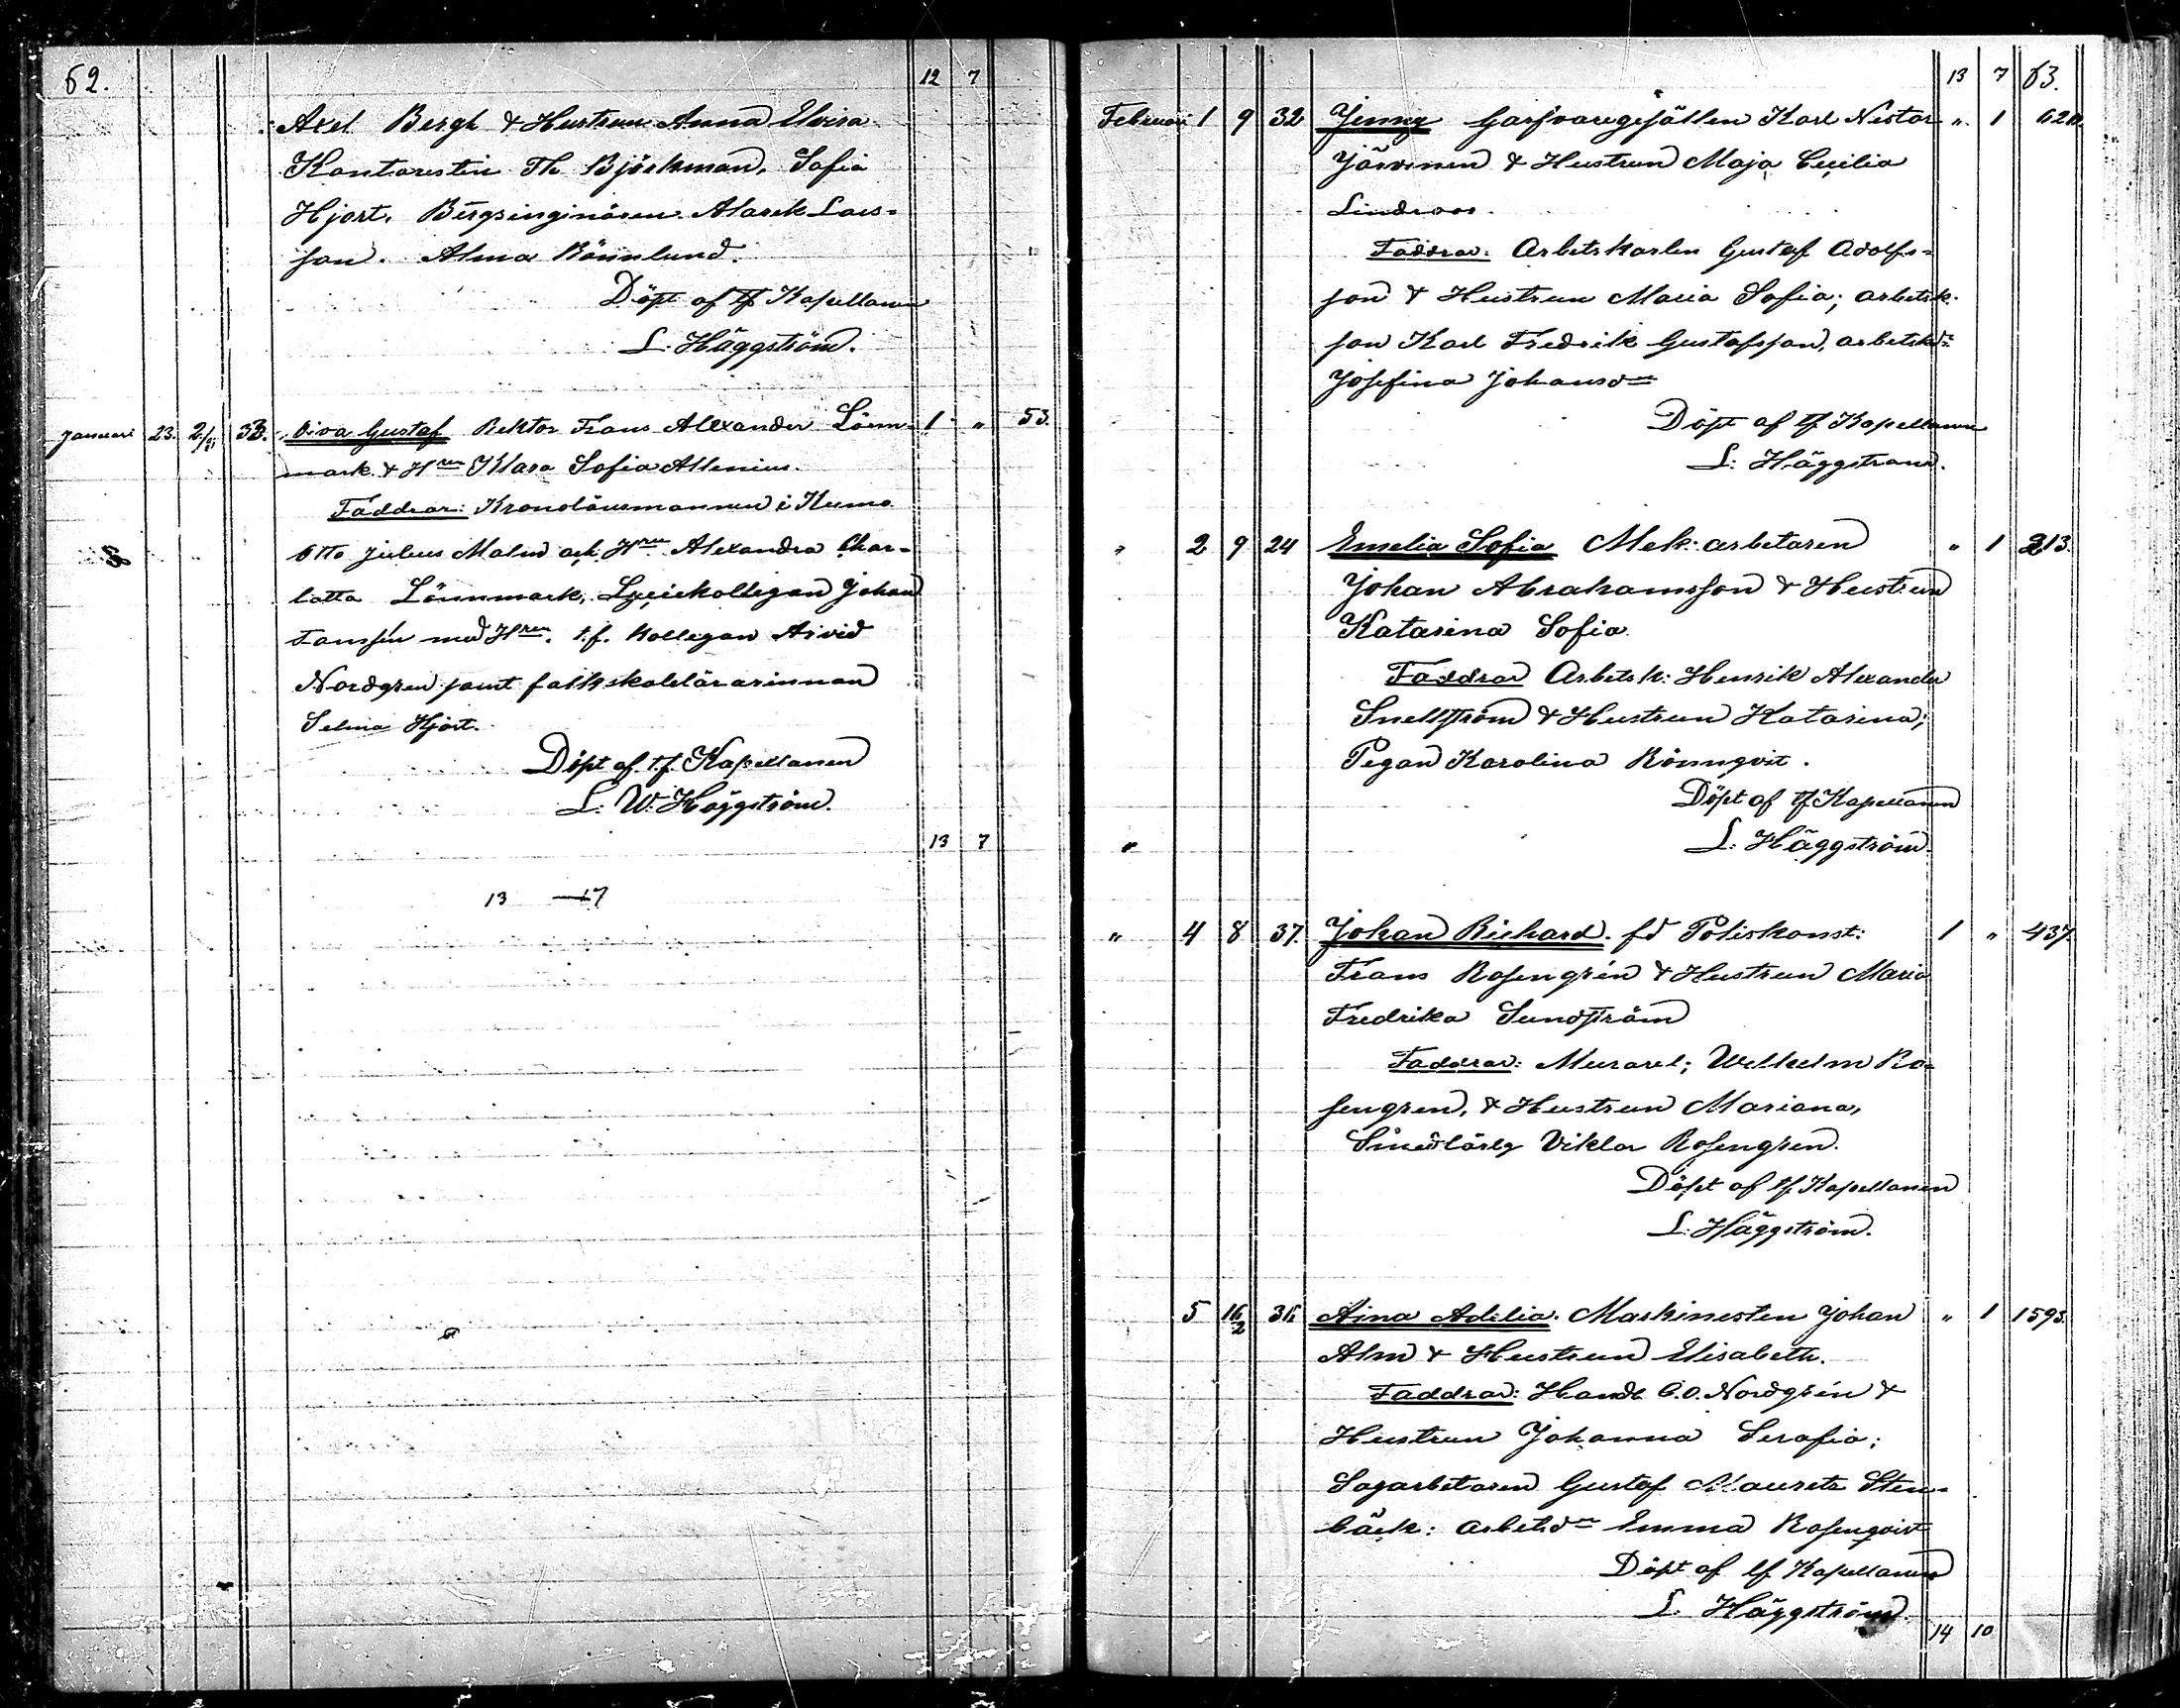 62. 12 7
Axel Bergh & Hustrun Anna Elvira
Kontoristen Th Björkman, Sofia
Hjort, Bergsinginören Alarik Lars=
son. Alma Rönnlund.
Döpt af tf Kapellanen
L. Häggström.
Januari 23. 2/2 33. Viva Gustaf Rektor Frans Alexander Lönn= 1 " 53.
mark & Hrun Klara Sofia Allenius.
Faddrar: Kronolänsmannen i Kumo
Otto Julius Malm och Hru Alexandra Char=
lotta Lönnmark, Lyceikollegan Johan
med Hru. t.f. Kollegan Arvid
Nordgren samt folkskolelärarinnan
Selma Hjort.
Döpt af t.f. Kapellanen
L. W. Häggström.
13 7
13 — 7
13 7 63.
Februari 1 9 32 Jenny Garfvaregesällen Karl Nestor " 1
Järvinen & Hustrun Maja Cecilia
Lindroos.
Faddrar: Arbetskarlen Gustaf Adolfs=
son & Hustrun Maria Sofia; arbetsk.
son Karl Fredrik Gustafsson, arbetsk
Josefina Johansdr
Döpt af tf Kapellanen
L. Häggström.
" 2 9 24 Emelia Sofia Mek: arbetaren " 1 213.
Johan Abrahamsson & Hustrun
Katarina Sofia.
Faddrar Arbetsk: Henrik Alexander
Snellström & Hustrun Katarina;
Pigan Karolina Rönnqvist.
Döpt af tf Kapellanen
L. Häggström.
" 4 8 37. Johan Richard. fd Poliskonst: 1 " 437.
Frans Rosengrén & Hustrun Maria
Fredrika Sundström
Faddrar: Murarel; Wilhelm Ro=
sengren, & Hustrun Mariana,
Smedlärlg Viktor Rosengren.
Döpt af tf Kapellanen
L. Häggström.
5 16/2 Aina Adelia. Maskinisten Johan " 1 1593.
Alm & Hustrun Elisabeth.
Faddrar: Handl. C.O. Nordgrén &
Hustrun Johanna Serafia;
Sagarbetaren Gustaf Maurits Sten=
bäck: arbetsdr Emma Rosenqvist
Döpt af tf Kapellanen
L. Häggström.
14 10